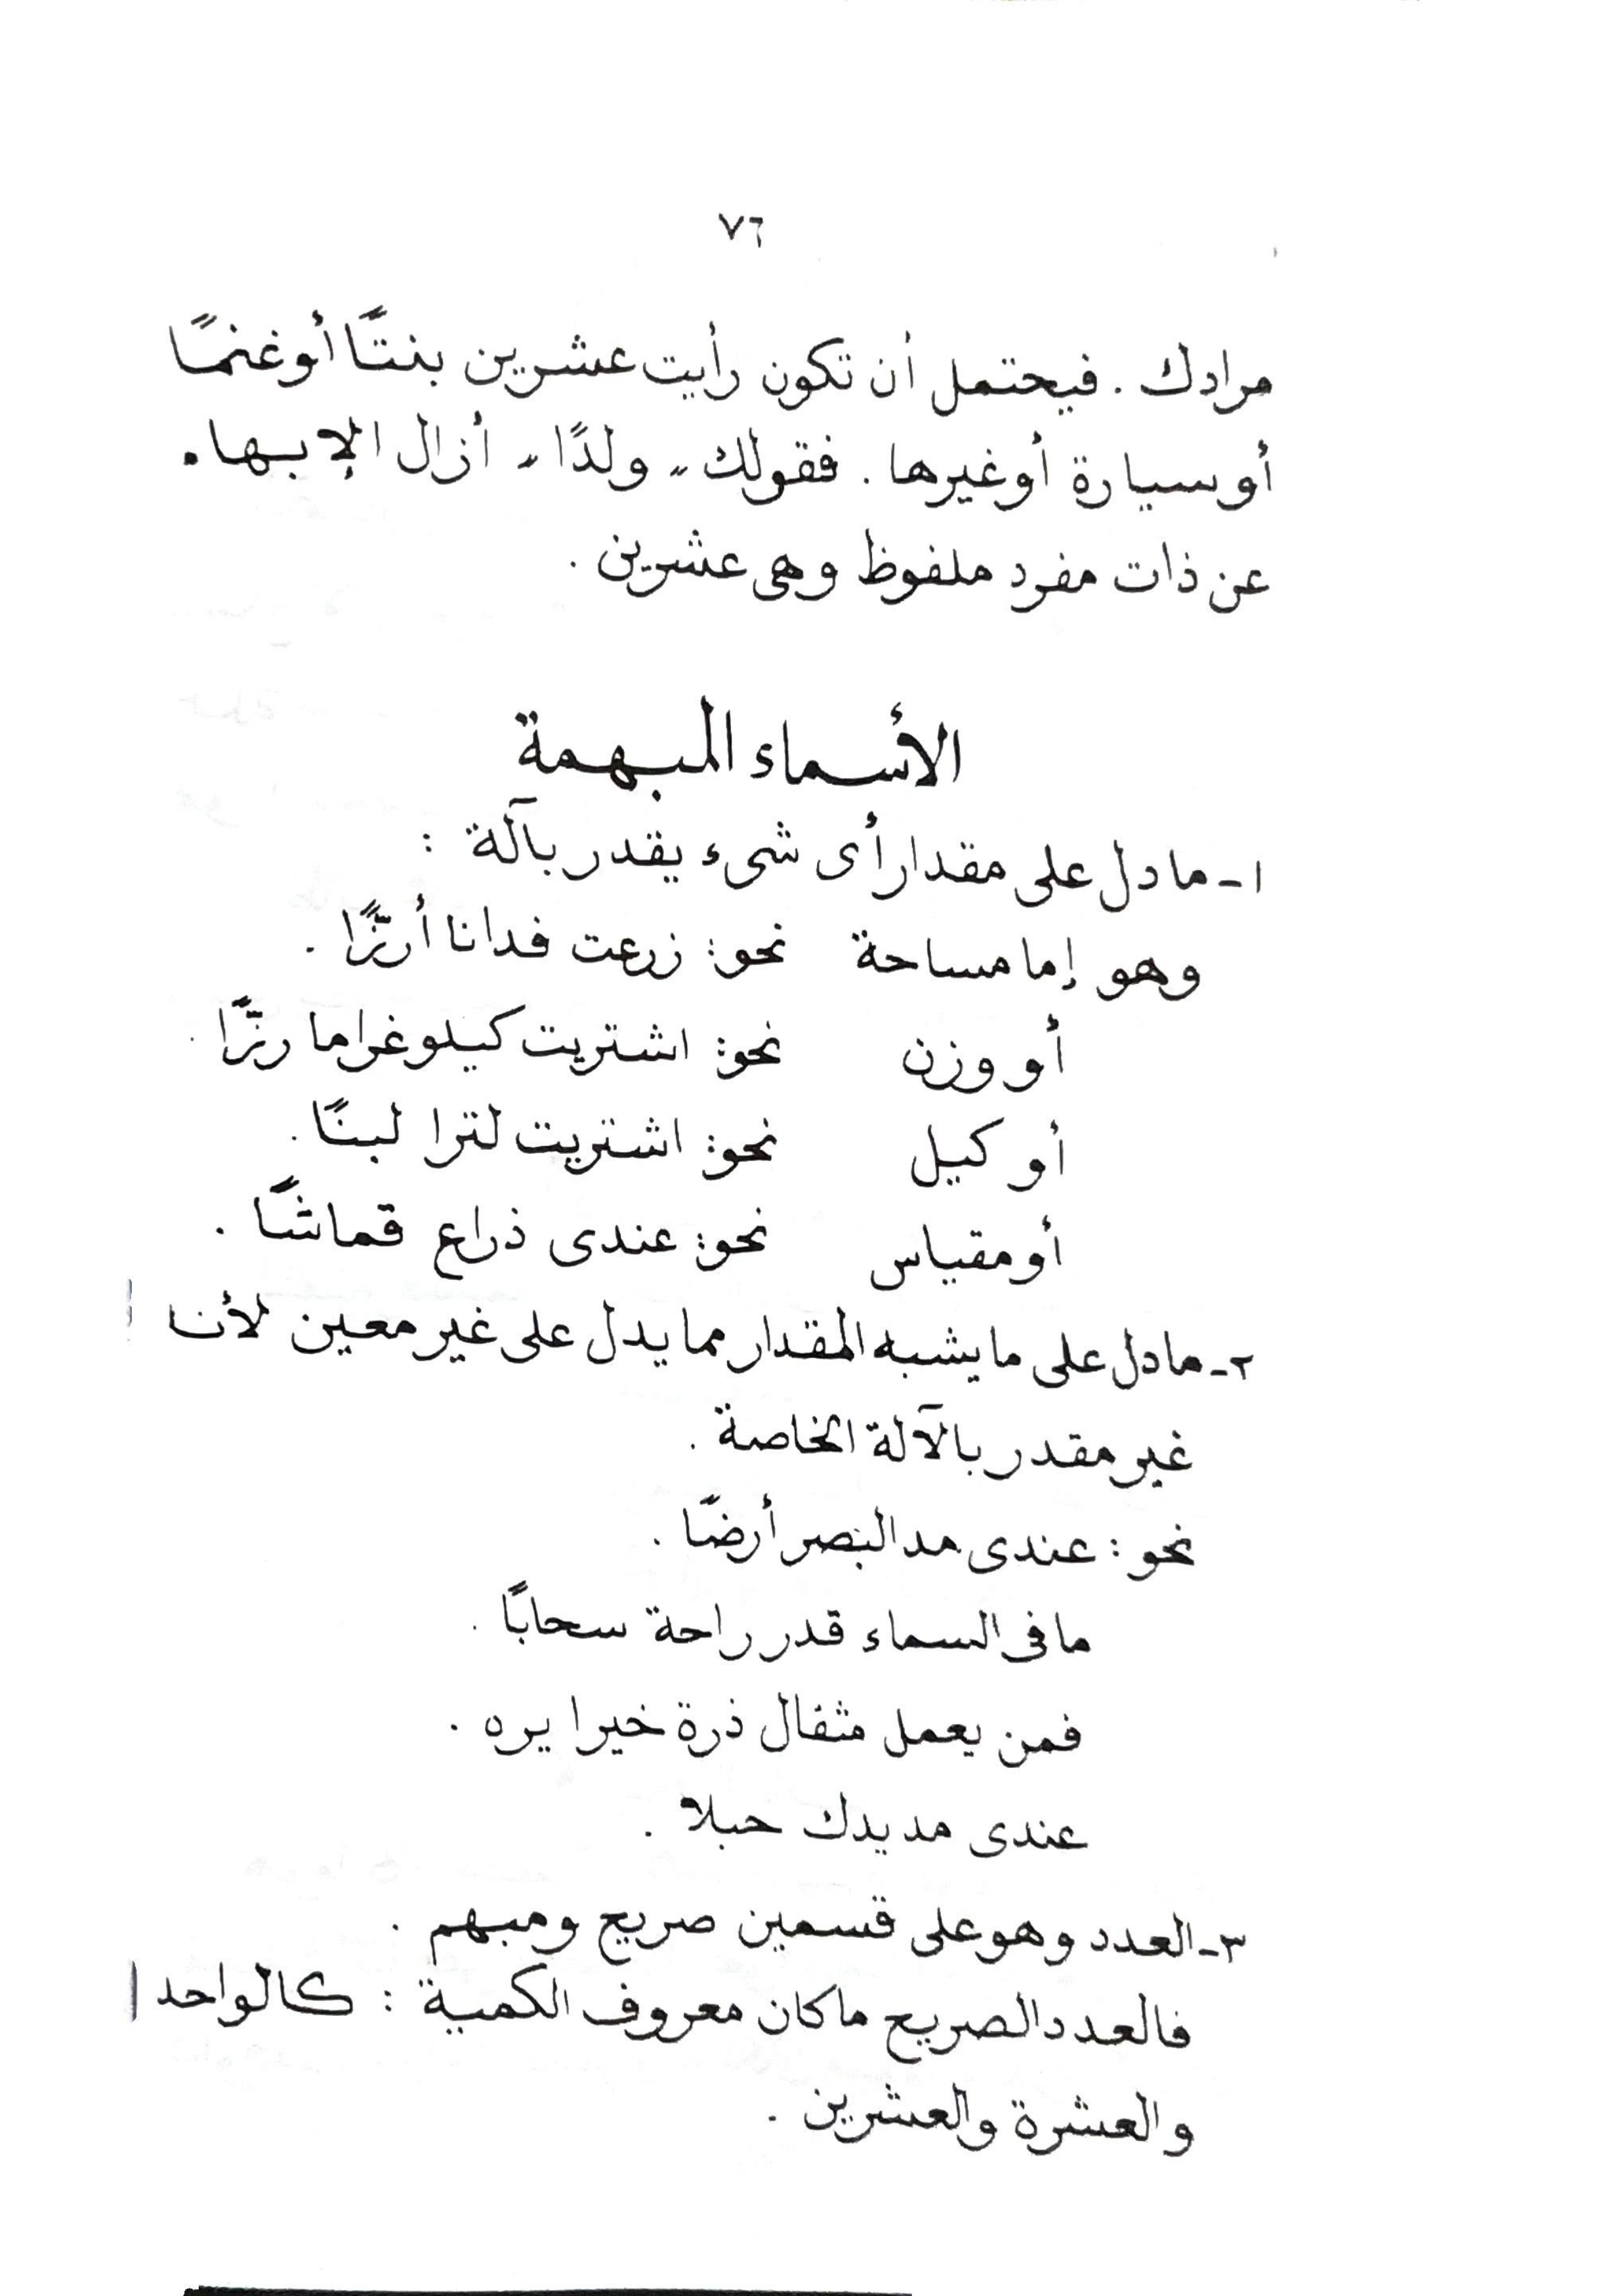 ٧٦
مرادك . فيحتمل أن تكون رأيت عشرين بنتًا أوغنمًا
أوسيارة أوغيرها . فقولك " ولدًا " أزال الإبهاء
عن ذات مفرد ملفوظ وهى عشرين .
الأسماء المبهمة
١- مادل على مقدار أى شىء يقدر بآلة :
وهو إما مساحة نحو: زرعت فدانا أرزًّا .
أو وزن نحو: اشتريت كيلوغراما رزًّا .
أو كيل نحو: اشتريت لترا لبنًا .
أو مقياس نحو: عندى ذراع قماشًا .
٢- مادل على ما يشبه المقدار مما يدل على غير معين لأنه
غير مقدر بالآلة الخاصة .
نحو : عندى مد البصر أرضًا .
ما فى السماء قدر راحة سحابًا .
فمن يعمل مثقال ذرة خيرا يره .
عندى مد يدك حبلا .
٣- العدد وهو على قسمين صريح ومبهم .
فالعدد الصريح ما كان معروف الكمية : كالواحد
والعشرة والعشرين .